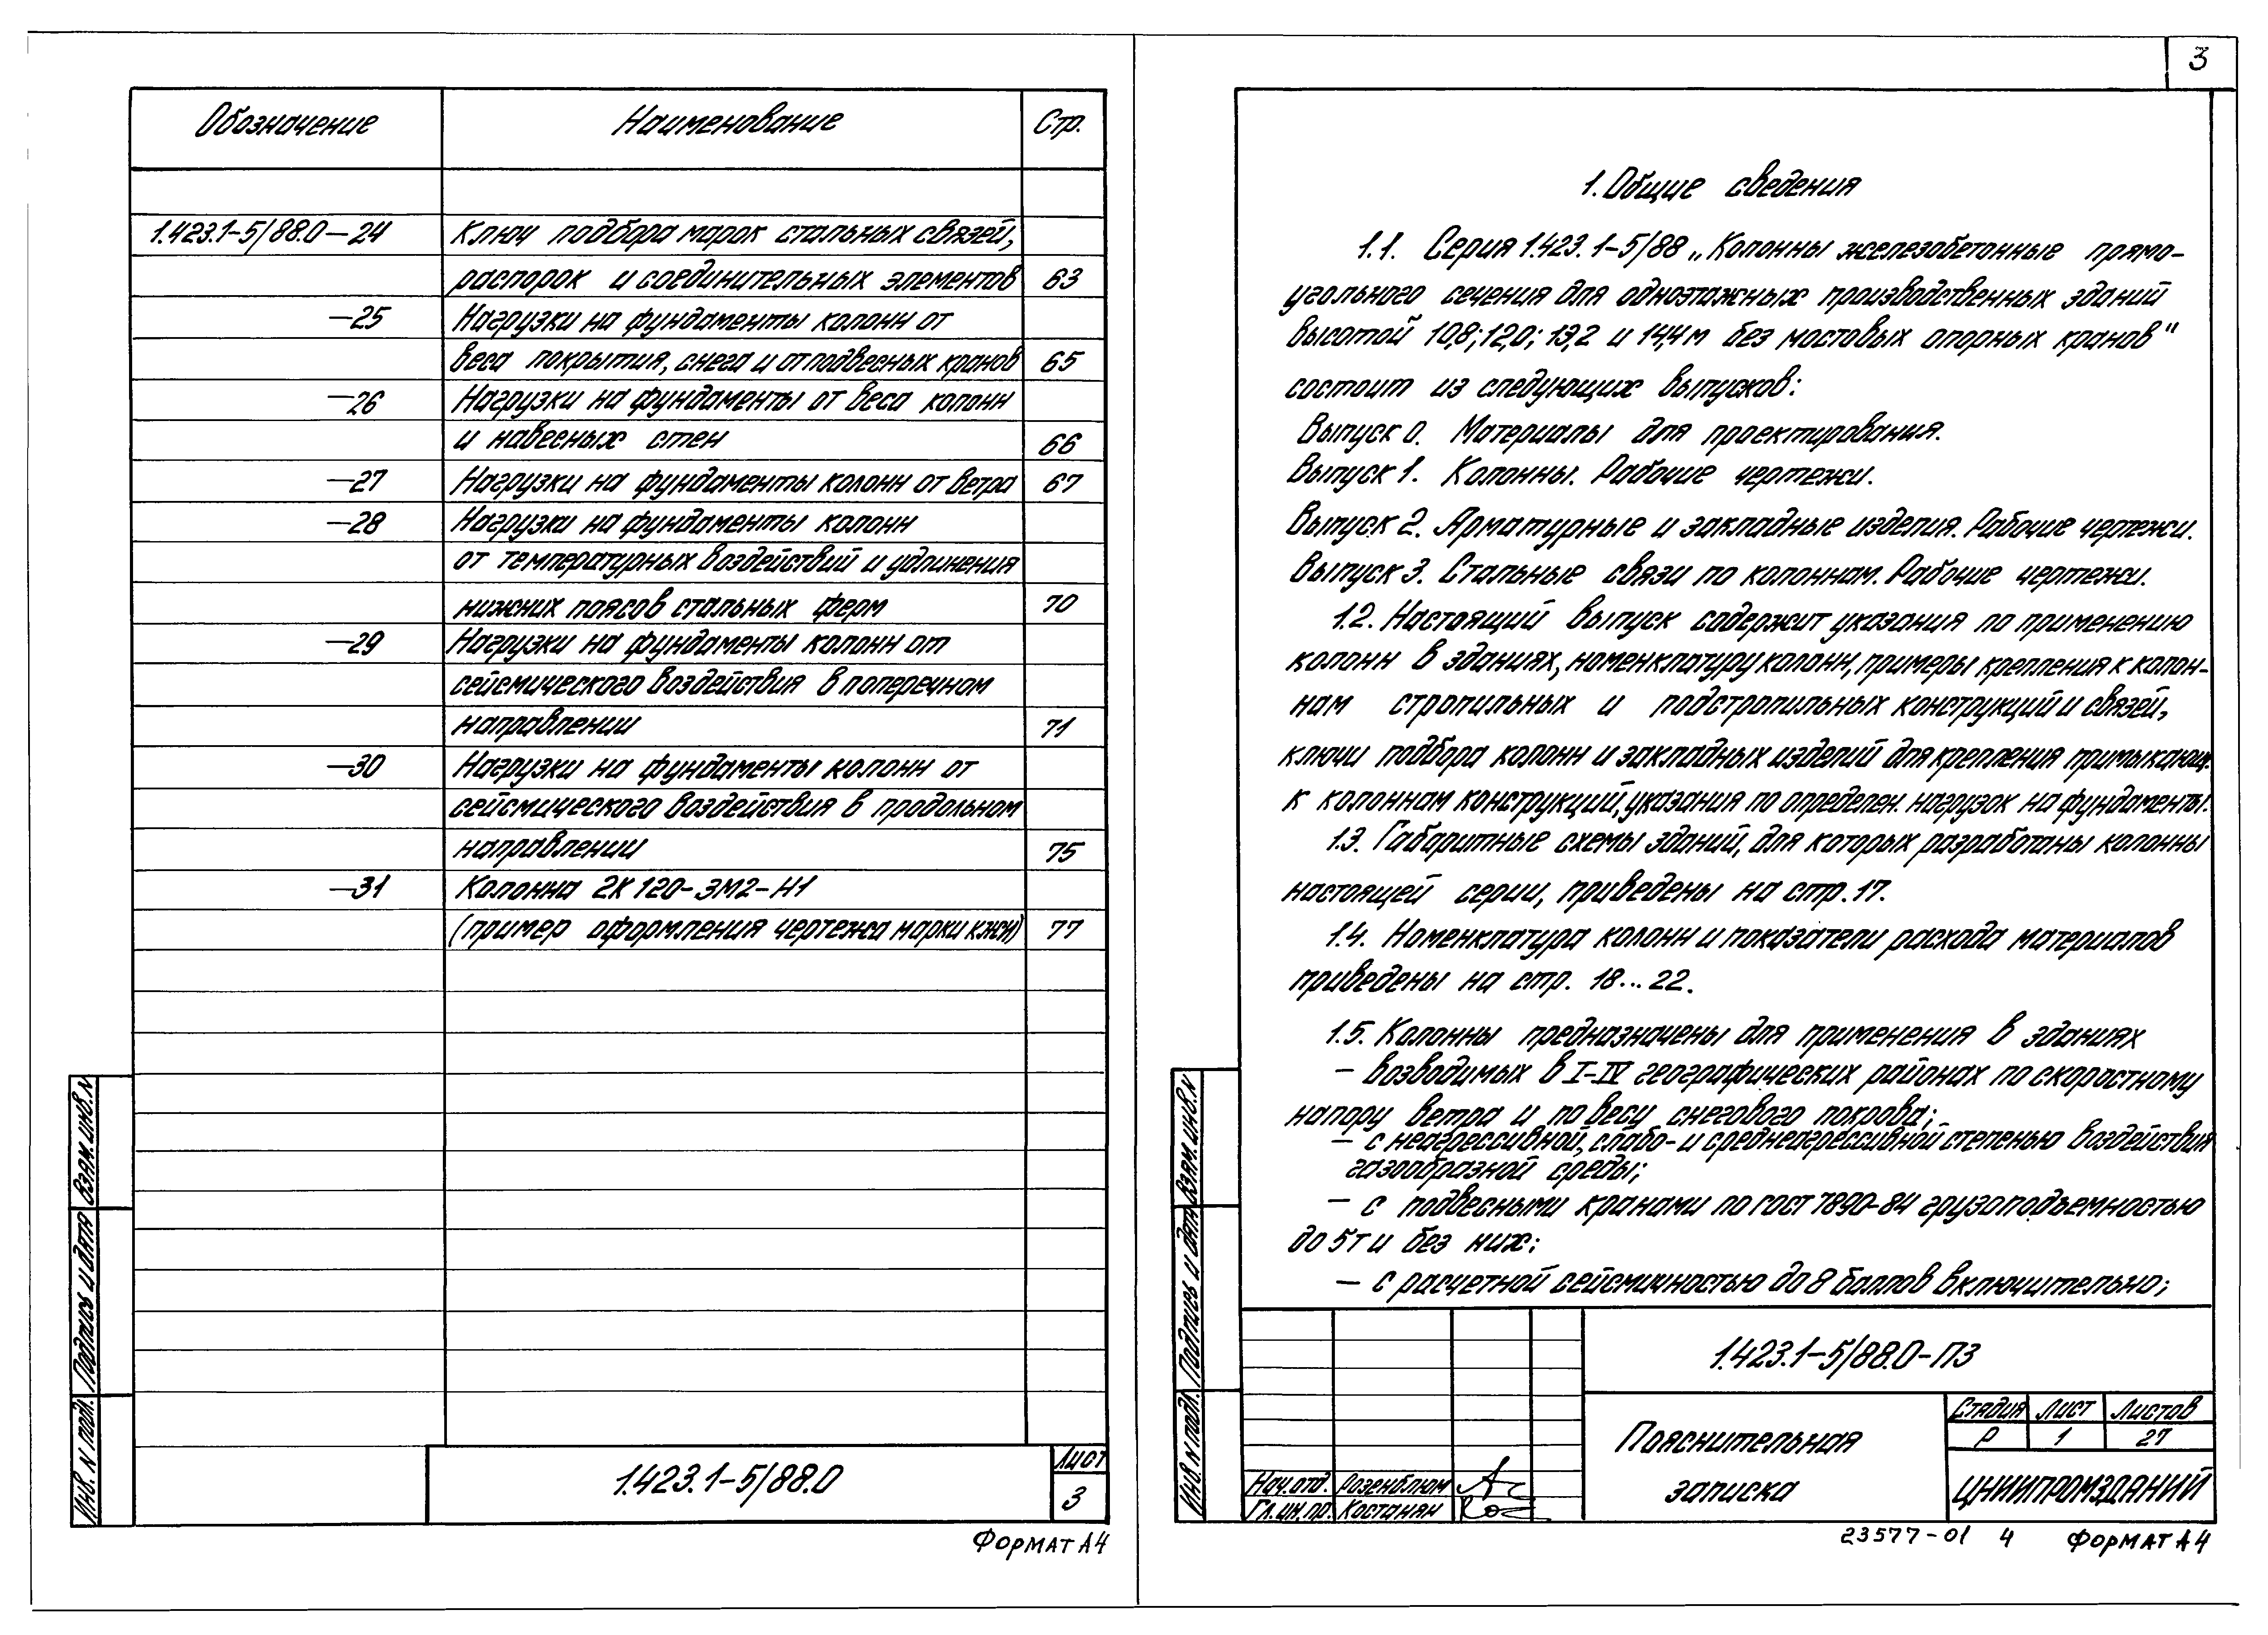 Обозначение Наименование Стр.
1.423.1-5/88.0-24 Ключ подбора марок стальных связей,
распорок и соединительных элементов 63
-25 Нагрузки на фундаменты колонн от
веса покрытия, снега и от подвесных кранов 65
-26 Нагрузки на фундаменты от веса колонн
и навесных стен 66
-27 Нагрузки на фундаменты колонн от ветра 67
-28 Нагрузки на фундаменты колонн
от температурных воздействий и удлинения
нижних поясов стальных ферм 70
-29 Нагрузки на фундаменты колонн от
сейсмического воздействия в поперечном
направлении 71
-30 Нагрузки на фундаменты колонн от
сейсмического воздействия в продольном
направлении 75
-31 Колонна 2К120-3М2-Н1
(пример оформления чертежа марки КЖИ) 77
Инв. N подл. Подпись и дата Взам. инв. N
1.423.1-5/88.0
Лист
3
Формат А4
3
1. Общие сведения
1.1. Серия 1.423.1-5/88 „Колонны железобетонные прямо-
угольного сечения для одноэтажных производственных зданий
высотой 10,8; 12,0; 13,2 и 14,4 м без мостовых опорных кранов"
состоит из следующих выпусков:
Выпуск 0. Материалы для проектирования.
Выпуск 1. Колонны. Рабочие чертежи.
Выпуск 2. Арматурные и закладные изделия. Рабочие чертежи.
Выпуск 3. Стальные связи по колоннам. Рабочие чертежи.
1.2. Настоящий выпуск содержит указания по применению
колонн в зданиях, номенклатуру колонн, примеры крепления к колон-
нам стропильных и подстропильных конструкций и связей,
ключи подбора колонн и закладных изделий для крепления примыкающ.
к колоннам конструкций, указания по определен. нагрузок на фундаменты.
1.3. Габаритные схемы зданий, для которых разработаны колонны
настоящей серии, приведены на стр. 17.
1.4. Номенклатура колонн и показатели расхода материалов
приведены на стр. 18...22.
1.5. Колонны предназначены для применения в зданиях
- возводимых в I-IV географических районах по скоростному
напору ветра и по весу снегового покрова;
- с неагрессивной, слабо- и среднеагрессивной степенью воздействия
газообразной среды;
- с подвесными кранами по ГОСТ 7890-84 грузоподъемностью
до 5т и без них;
- с расчетной сейсмичностью до 8 баллов включительно;
Инв. N подл. Подпись и дата Взам. инв. N
1.423.1-5/88.0-ПЗ
Пояснительная
записка
Стадия Лист Листов
Р 1 27
ЦНИИПРОМЗДАНИЙ
Нач.отд. Розенблюм
Гл.ин.пр. Костанян
23577-01 4 Формат А4